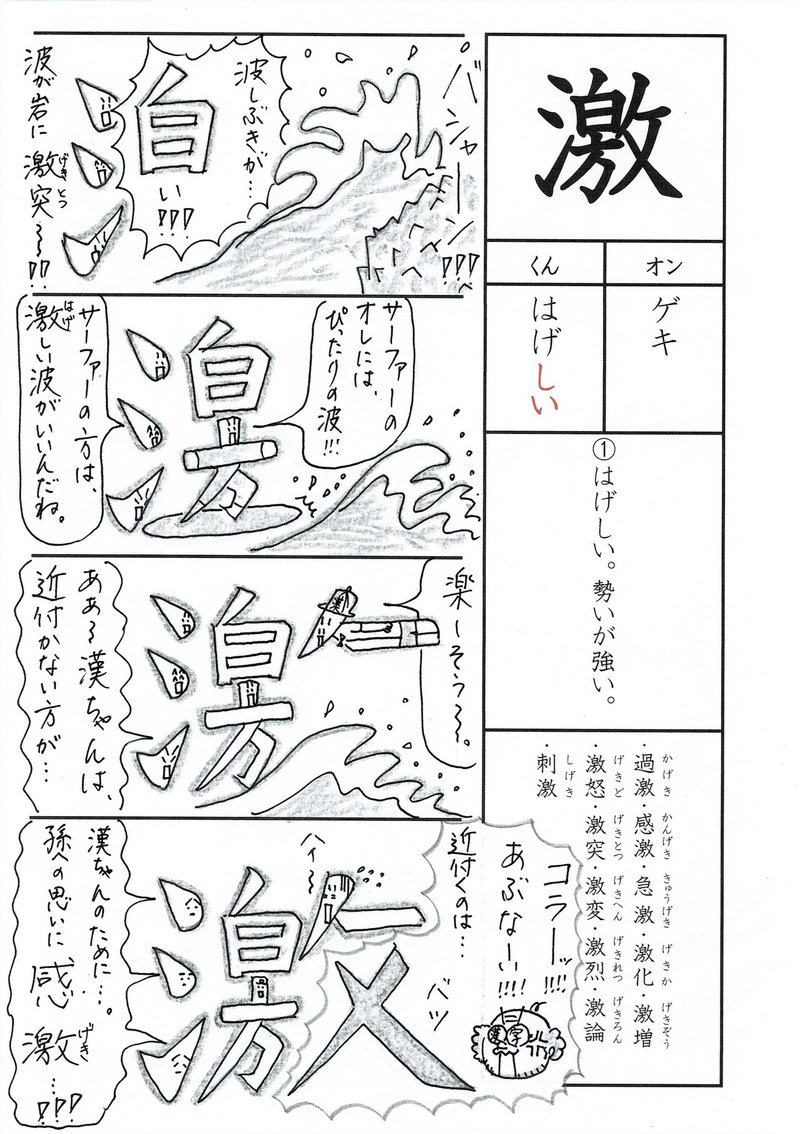 激
オン
くん
ゲキ
はげしい
①はげしい。勢いが強い。
・過激・感激・急激・激化・激増
かげき かんげき きゅうげき げきか げきぞう
・激怒・激突・激変・激烈・激論
げきど げきとつ げきへん げきれつ げきろん
・刺激
しげき
バシャーーン!!!
波しぶきが…
白い!!!
波が岩に激突〜〜!!
げきとつ
サーファーの
オレには、
ぴったりの波!!!
サーファーの方は、
激しい波がいいんだね。
はげ
楽しそう〜〜。
ああ〜漢ちゃんは、
近付かない方が…
コラーッ!!!!
あぶなーい!!!!
近付くのは…
バツ
ハイ〜
漢ちゃんのために…。
孫への思いに、
感激…!!!
げき
漢
字